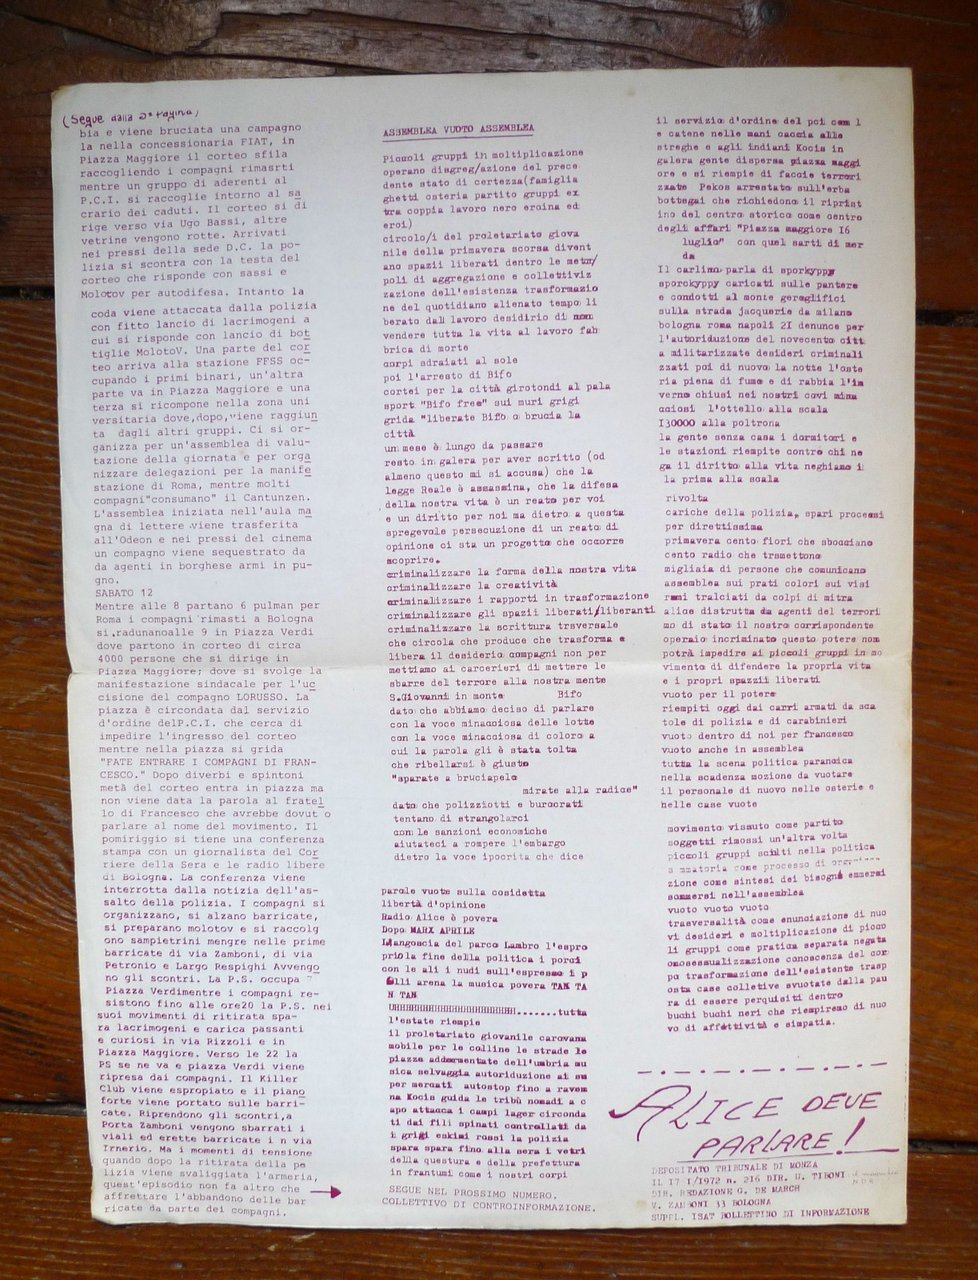 (Segue dalla 2ª Pagina)
bia e viene bruciata una campagno
la nella concessionaria FIAT, in
Piazza Maggiore il corteo sfila
raccogliendo i compagni rimasrti
mentre un gruppo di aderenti al
P.C.I. si raccoglie intorno al sa
crario dei caduti. Il corteo si di
rige verso via Ugo Bassi, altre
vetrine vengono rotte. Arrivati
nei pressi della sede D.C. la po-
lizia si scontra con la testa del
corteo che risponde con sassi e
Molotov per autodifesa. Intanto la
coda viene attaccata dalla polizia
con fitto lancio di lacrimogeni a
cui si risponde con lancio di bot
tiglie MolotoV. Una parte del cor
teo arriva alla stazione FFSS oc-
cupando i primi binari, un'altra
parte va in Piazza Maggiore e una
terza si ricompone nella zona uni
versitaria dove,dopo,viene raggiun
ta dagli altri gruppi. Ci si or-
ganizza per un'assemblea di valu-
tazione della giornata e per orga
nizzare delegazioni per la manife
stazione di Roma, mentre molti
compagni"consumano" il Cantunzen.
L'assemblea iniziata nell'aula ma
gna di lettere viene trasferita
all'Odeon e nei pressi del cinema
un compagno viene sequestrato da
da agenti in borghese armi in pu-
gno.
SABATO 12
Mentre alle 8 partano 6 pulman per
Roma i compagni rimasti a Bologna
si.radunanoalle 9 in Piazza Verdi
dove partono in corteo di circa
4000 persone che si dirige in
Piazza Maggiore; dove si svolge la
manifestazione sindacale per l'uc
cisione del compagno LORUSSO. La
piazza è circondata dal servizio
d'ordine delP.C.I. che cerca di
impedire l'ingresso del corteo
mentre nella piazza si grida
"FATE ENTRARE I COMPAGNI DI FRAN-
CESCO." Dopo diverbi e spintoni
metà del corteo entra in piazza ma
non viene data la parola al fratel
lo di Francesco che avrebbe dovut o
parlare al nome del movimento. Il
pomiriggio si tiene una conferenza
stampa con un giornalista del Cor
riere della Sera e le radio libere
di Bologna. La conferenza viene
interrotta dalla notizia dell'as-
salto della polizia. I compagni si
organizzano, si alzano barricate,
si preparano molotov e si raccolg
ono sampietrini mengre nelle prime
barricate di via Zamboni, di via
Petronio e Largo Respighi Avvengo
no gli scontri. La P.S. occupa
Piazza Verdimentre i compagni re-
sistono fino alle ore20 la P.S. nei
suoi movimenti di ritirata spa-
ra lacrimogeni e carica passanti
e curiosi in via Rizzoli e in
Piazza Maggiore. Verso le 22 la
PS se ne va e piazza Verdi viene
ripresa dai compagni. Il Killer
Club viene espropiato e il piano
forte viene portato sulle barri-
cate. Riprendono gli scontri,a
Porta Zamboni vengono sbarrati i
viali ed erette barricate i n via
Irnerio. Ma i momenti di tensione
quando dopo la ritirata della po
lizia viene svaligiata l'armeria,
quest'episodio non fa altro che
affrettare l'abbandono delle bar
ricate da parte dei compagni.
ASSEMBLEA VUOTO ASSEMBLEA
Piccoli gruppi in moltiplicazione
operano disgreg/azione del prece
dente stato di certezza(famiglia
ghetti osteria partito gruppi ex
tra coppia lavoro nero eroina ed
eroi)
circolo/i del proletariato giova
nile della primavera scorsa divent
ano spazii liberati dentro le metro/
poli di aggregazione e collettiviz
zazione dell'esistenza trasformazio
ne del quotidiano alienato tempo li
berato dal lavoro desidirio di non
vendere tutta la vita al lavoro fab
brica di morte
corpi sdraiati al sole
poi l'arresto di Bifo
cortei per la città girotondi al pala
sport "Bifo free" sui muri grigi
grida "liberate Bifo o brucia la
città
un mese è lungo da passare
resto in galera per aver scritto (od
almeno questo mi si accusa) che la
legge Reale è assassina, che la difesa
della nostra vita è un reato per voi
e un diritto per noi ma dietro a questa
spregevole persecuzione di un reato di
opinione ci sta un progetto che occorre
scoprire.
criminalizzare la forma della nostra vita
criminalizzare la creatività
criminalizzare i rapporti in trasformazione
criminalizzare gli spazii liberati/liberanti
criminalizzare la scrittura trsversale
che circola che produce che trasforma e
libera il desiderio compagni non per
mettiamo ai carcerieri di mettere le
sbarre del terrore alla nostra mente
S.Giovanni in monte Bifo
dato che abbiamo deciso di parlare
con la voce minacciosa delle lotte
con la voce minacciosa di coloro a
cui la parola gli è stata tolta
che ribellarsi è giusto
"sparate a bruciapelo
mirate alla radice"
dato che polizziotti e burocrati
tentano di strangolarci
con le sanzioni economiche
aiutateci a rompere l'embargo
dietro la voce ipocrita che dice
parole vuote sulla cosidetta
libertà d'opinione
Radio Alice è povera
Dopo MARX APRILE
L'angoscia del parco Lambro l'espro
prio la fine della politica i porci
con le ali i nudi sull'espresso i p
olli arena la musica povera TAM TA
M TAM
UHHHHHHHHHHHHHHHHHHHHHHH.......tutta
l'estate riempie
il proletariato giovanile carovana
mobile per le colline le strade le
piazze addormentate dell'umbria mu
sica selvaggia autoriduzione ai su
per mercati autostop fino a raven
na Kocis guida le tribù nomadi a c
apo attacca i campi lager circonda
ti dai fili spinati controllati da
i grigi eskimi rossi la polizia
spara spara fino alla sera i vetri
della questura e della prefettura
in frantumi come i nostri corpi
SEGUE NEL PROSSIMO NUMERO.
COLLETTIVO DI CONTROINFORMAZIONE.
il servizio d'ordine del pci con l
e catene nelle mani caccia alle
streghe e agli indiani Kocis in
galera gente dispersa piazza maggi
ore e si riempie di faccie terrori
zzate Pekos arrestato sull'erba
bottegai che richiedono il riprist
ino del centro storico come centro
degli affari "Piazza maggiore 16
luglio" con quei sarti di mer
da
Il carlino parla di sporkyppy
sporckyppy caricati sulle pantere
e condotti al monte geroglifici
sulla strada jacquerie da milano
bologna roma napoli 2I denunce per
l'autoriduzione del novecento citt
a militarizzate desideri criminali
zzati poi di nuovo la notte l'oste
ria piena di fumo e di rabbia l'in
verno chiusi nei nostri covi mina
cciosi l'ottello alla scala
I30000 alla poltrona
la gente senza casa i dormitori e
le stazioni riempite contro chi ne
ga il diritto alla vita neghiamo i
la prima alla scala
rivolta
cariche della polizia, spari processi
per direttissima
primavera cento fiori che sbocciano
cento radio che trsmettono
migliaia di persone che comunicano
assemblea sui prati colori sui visi
rami tralciati da colpi di mitra
alice distrutta da agenti del terrori
mo di stato il nostro corrispondente
operaio incriminato questo potere non
potrà impedire ai piccoli gruppi in mo
vimento di difendere la propria vita
e i propri spazii liberati
vuoto per il potere
riempiti oggi dai carri armati da sca
tole di polizia e di carabinieri
vuoto dentro di noi per francesco
vuoto anche in assemblea
tutta la scena politica paranoica
nella scadenza mozione da vuotare
il personale di nuovo nelle osterie e
nelle case vuote
movimento vissuto come partito
soggetti rimossi un'altra volta
piccoli gruppi sciolti nella politica
a matoria come processo di
zione come sintesi dei bisogni emmersi
sommersi nell'assemblea
vuoto vuoto vuoto
trasversalità come enunciazione di nuo
vi desideri e moltiplicazione di picco
li gruppi come pratica separata negata
omosessualizzazione conoscenza del cor
po trasformazione dell'esistente trasp
osta case colletive svuotate dalla pau
ra di essere perquisiti dentro
buchi buchi neri che riempiremo di nuo
vo di affettività e simpatia.
ALICE DEVE
PARLARE!
DEPOSITATO TRIBUNALE DI MONZA
IL 17 1/1972 n. 216 DIR. U. TIBONI
DIR. REDAZIONE G. DE MARCH
V. ZAMBONI 33 BOLOGNA
SUPPL. ISAT BOLLETTINO DI INFORMAZIONE